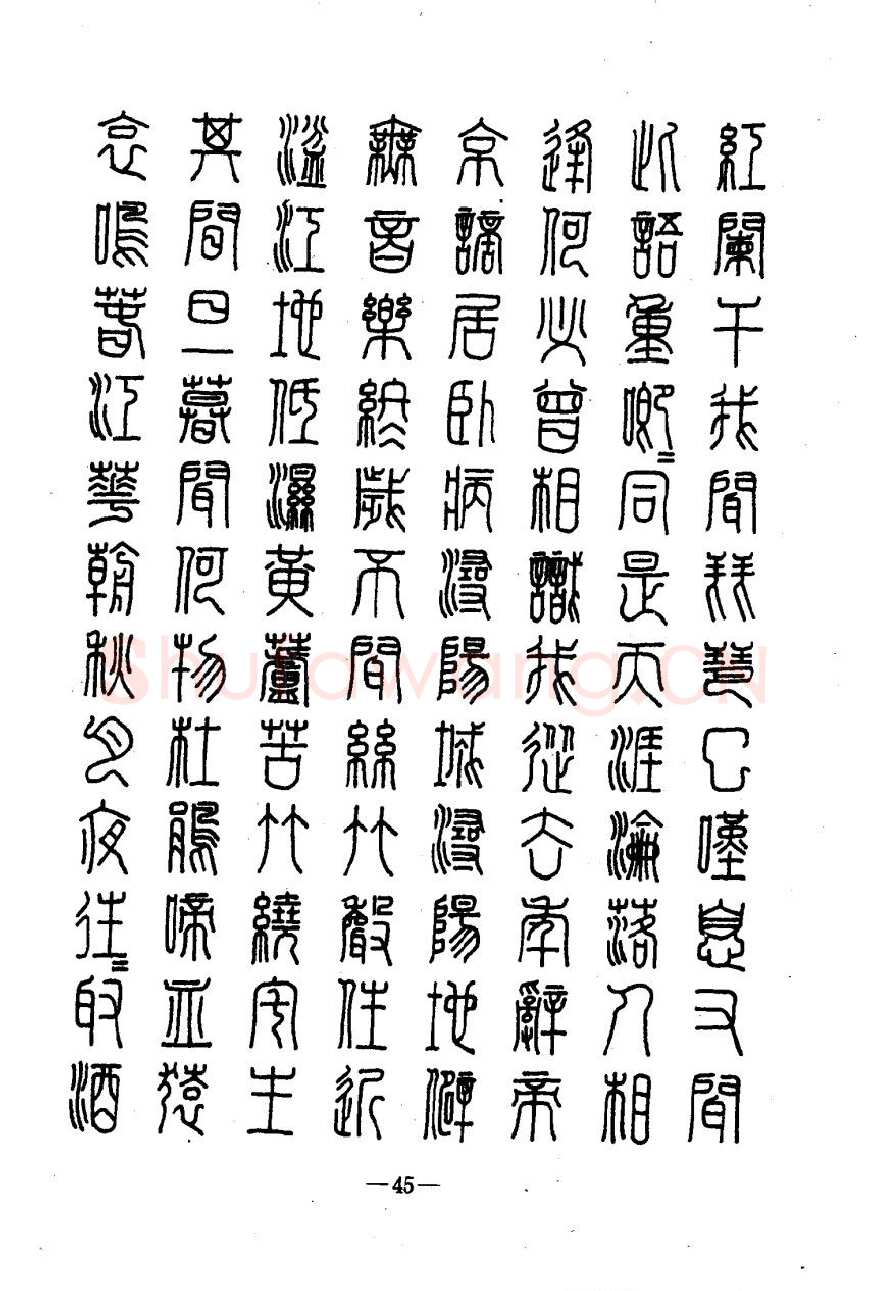 紅闌干我聞琵琶已嘆息又聞
此語重唧=同是天涯淪落人相
逢何必曾相識我從去年辭帝
京謫居臥病潯陽城潯陽地僻
無音樂終歲不聞絲竹聲住近
湓江地低濕黃蘆苦竹繞宅生
其間旦暮聞何物杜鵑啼血猿
哀鳴春江華朝秋月夜往=取酒
—45—
Shufawang.CN